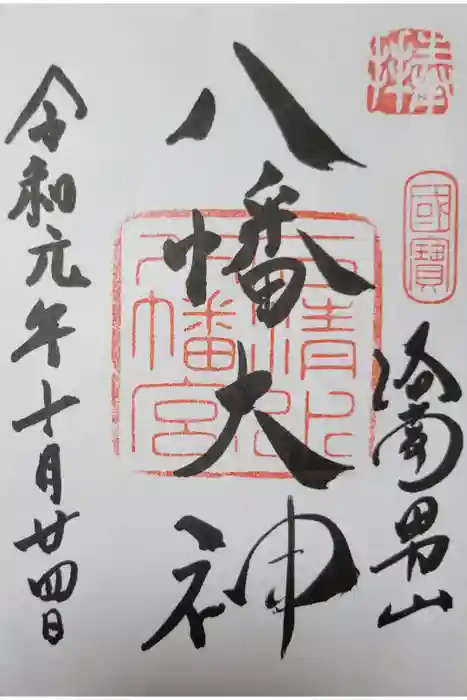 奉拝
國寶
洛南男山
八幡大神
石清水
八幡宮
令和元年十月廿四日